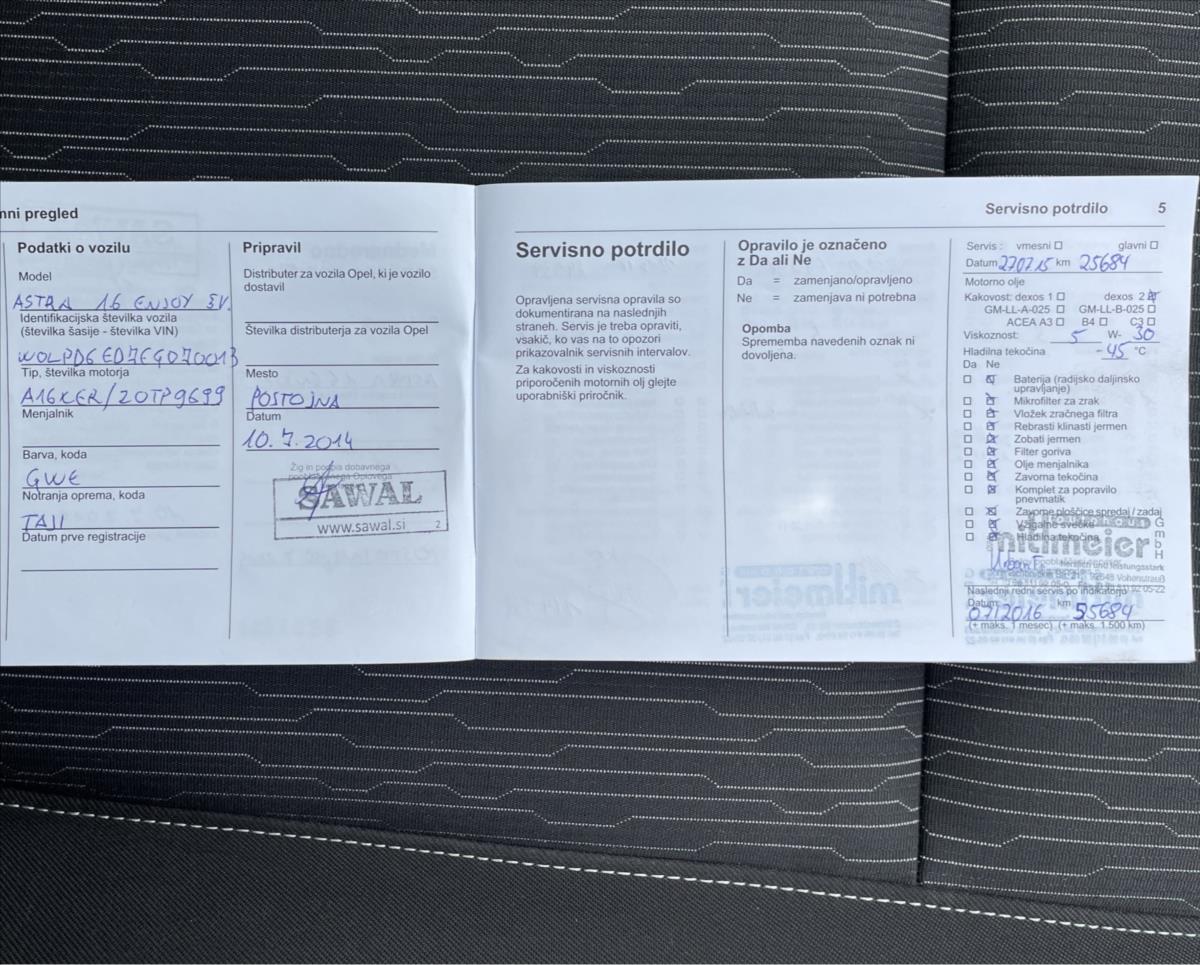 mni pregled
Podatki o vozilu
Model
ASTRA 1.6 ENJOY 5V.
Identifikacijska številka vozila
(številka šasije - številka VIN)
W0LPD6ED7EG070013
Tip, številka motorja
A16XER/20TP9699
Menjalnik
Barva, koda
GWE
Notranja oprema, koda
TAJI
Datum prve registracije
Pripravil
Distributer za vozila Opel, ki je vozilo
dostavil
Številka distributerja za vozila Opel
Mesto
POSTOJNA
Datum
10.7.2014
Žig in podpis dobavnega
SAWAL
www.sawal.si 2
Servisno potrdilo 5
Servisno potrdilo
Opravljena servisna opravila so
dokumentirana na naslednjih
straneh. Servis je treba opraviti,
vsakič, ko vas na to opozori
prikazovalnik servisnih intervalov.
Za kakovosti in viskoznosti
priporočenih motornih olj glejte
uporabniški priročnik.
Opravilo je označeno
z Da ali Ne
Da = zamenjano/opravljeno
Ne = zamenjava ni potrebna
Opomba
Sprememba navedenih oznak ni
dovoljena.
Servis : vmesni glavni
Datum 270715 km 25684
Motorno olje
Kakovost: dexos 1 dexos 2
GM-LL-A-025 GM-LL-B-025
ACEA A3 B4 C3
Viskoznost: 5 W- 30
Hladilna tekočina -45 °C
Da Ne
Baterija (radijsko daljinsko
upravljanje)
Mikrofilter za zrak
Vložek zračnega filtra
Rebrasti klinasti jermen
Zobati jermen
Filter goriva
Olje menjalnika
Zavorna tekočina
Komplet za popravilo
pnevmatik
Zavorne ploščice spredaj / zadaj
Vžigalne svečke
Hladilna tekočina
autohaus
mitlmeier GmbH
herzlich und leistungsstark
92648 Vohenstrauß
Naslednji redni servis po indikatorju
Datum 07/2016 km 55684
(+ maks. 1 mesec) (+ maks. 1.500 km)